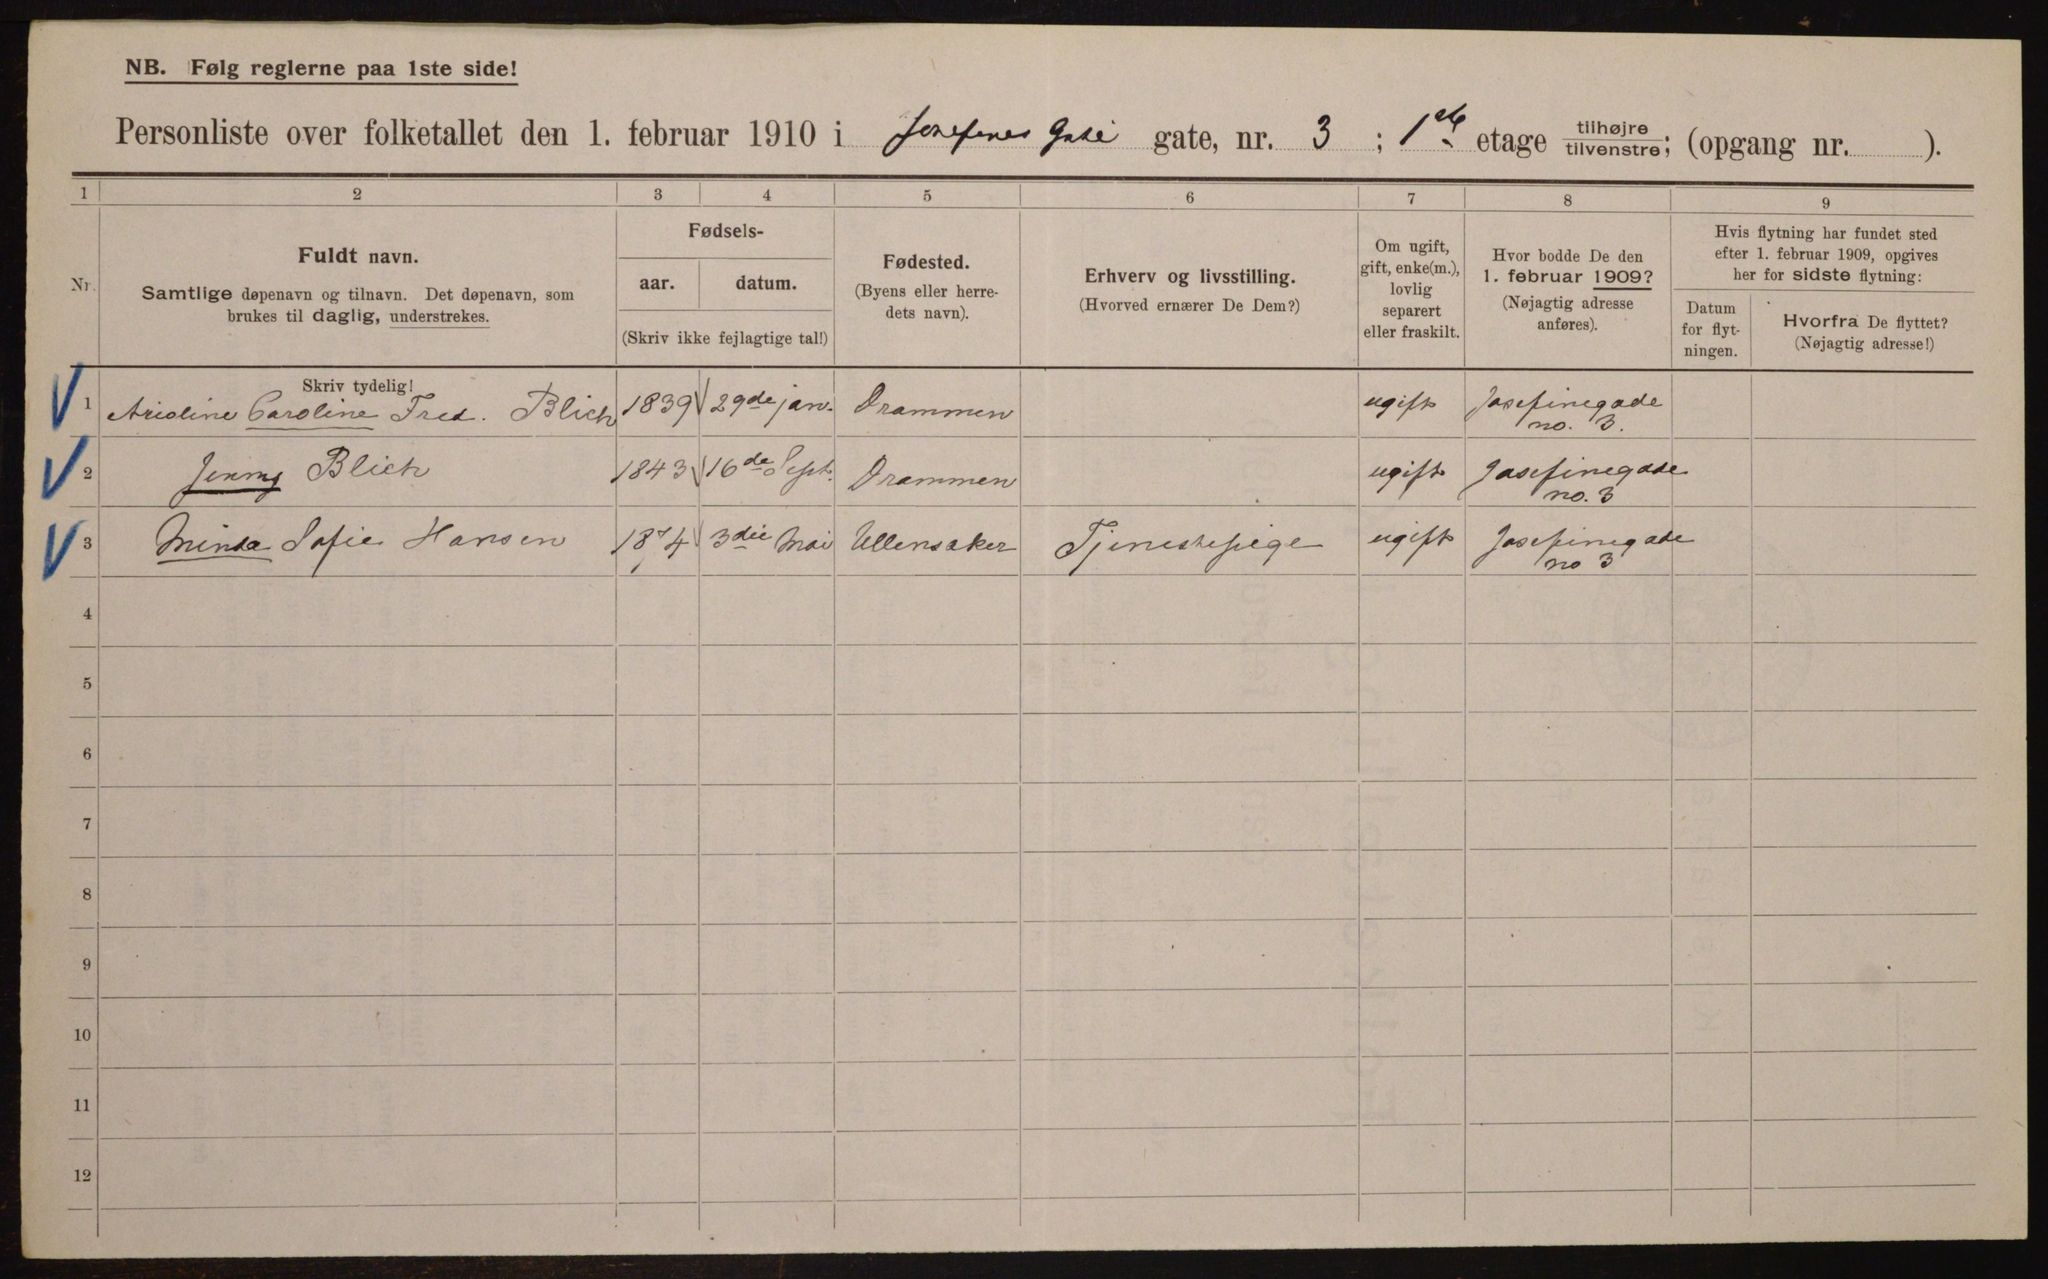 NB. Følg reglerne paa 1ste side!
Personliste over folketallet den 1. februar 1910 i Josefines Gade gate, nr. 3 ; 1ste etage tilhøjre tilvenstre; (opgang nr. ).
1 2 3 4 5 6 7 8 9
Nr.
Fuldt navn.
Samtlige døpenavn og tilnavn. Det døpenavn, som
brukes til daglig, understrekes.
Fødsels-
aar. datum.
(Skriv ikke fejlagtige tal!)
Fødested.
(Byens eller herre-
dets navn).
Erhverv og livsstilling.
(Hvorved ernærer De Dem?)
Om ugift,
gift, enke(m.),
lovlig
separert
eller fraskilt.
Hvor bodde De den
1. februar 1909?
(Nøjagtig adresse
anføres).
Hvis flytning har fundet sted
efter 1. februar 1909, opgives
her for sidste flytning:
Datum
for flyt-
ningen.
Hvorfra De flyttet?
(Nøjagtig adresse!)
Skriv tydelig!
1 Caroline Fred. Blich 1839 29de jan. Drammen ugift Josefinegade
no. 3.
2 Jenny Blich 1843 16de Sept. Drammen ugift Josefinegade
no. 3
3 Minda Sofie Hansen 1874 3die Mai Ullensaker Tjenestepige ugift Josefinegade
no 3
4
5
6
7
8
9
10
11
12